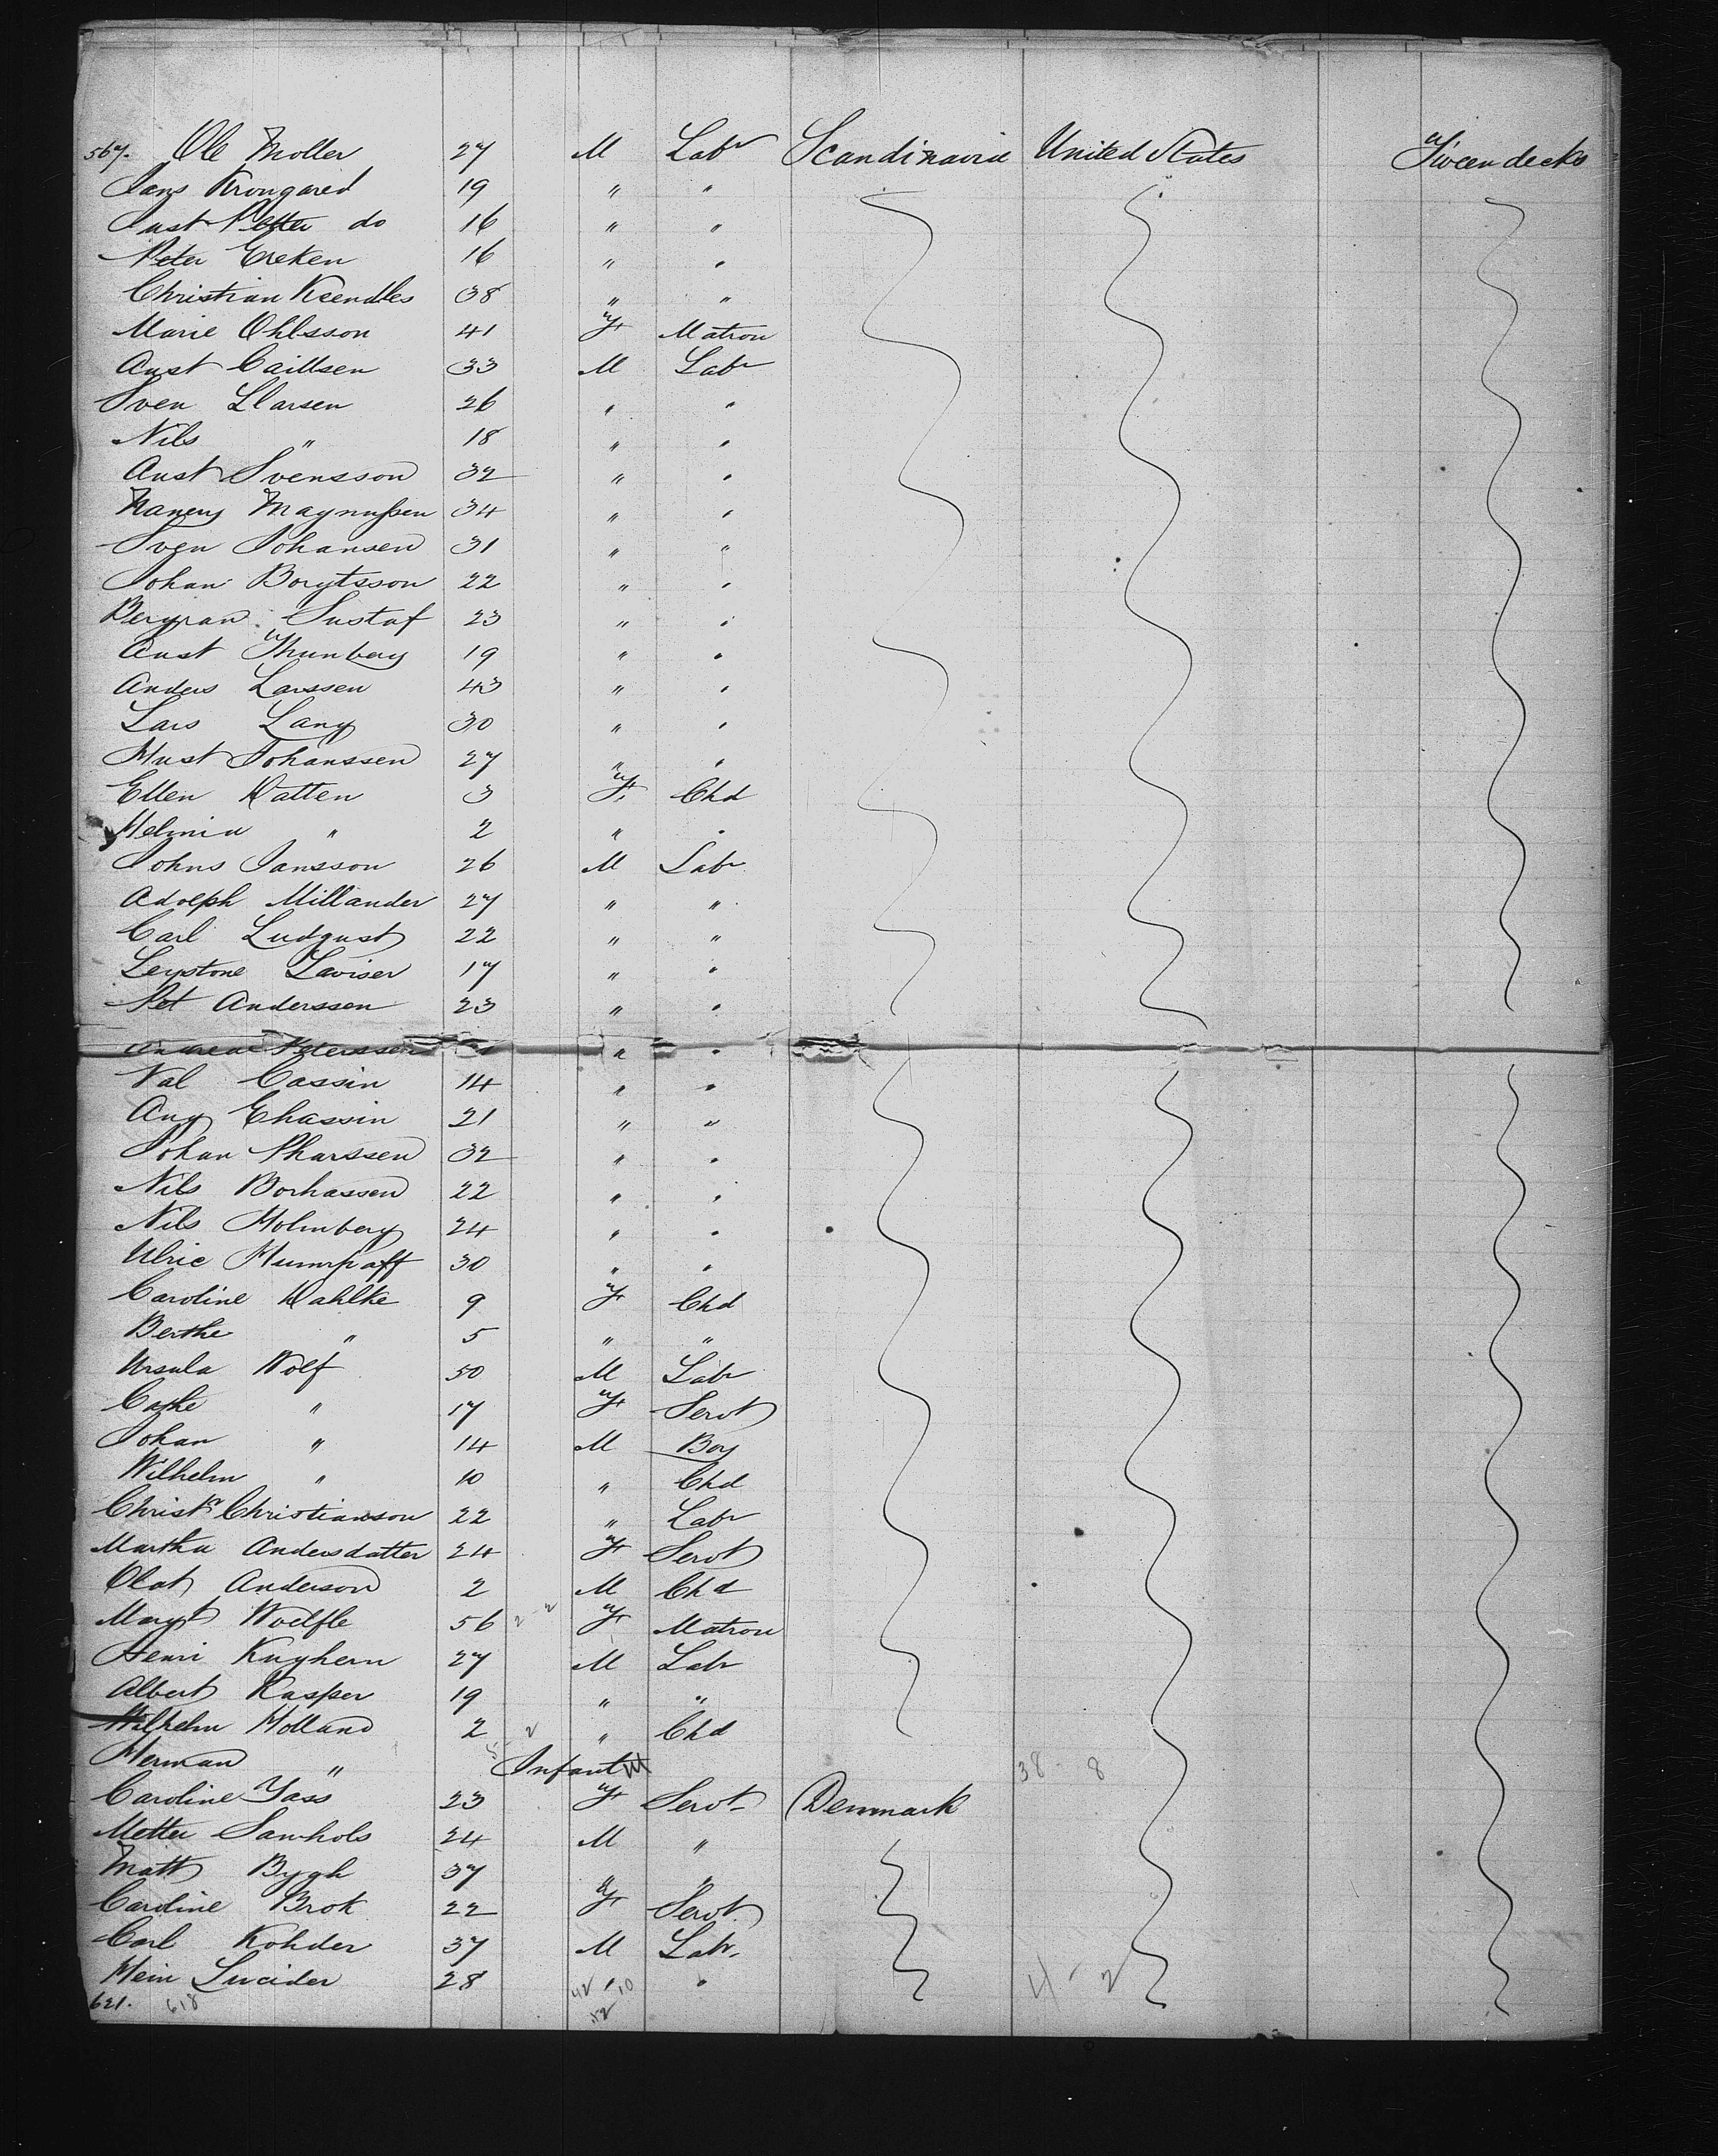 567. Ole Moller 27 M Labr Scandinavia United States Tween decks
Jans Krongared 19 " "
Just Petter do 16 " "
Peter Ereken 16 " "
Christian Kaendles 38 " "
Marie Ohlsson 41 F Matron
Aust Caillsen 33 M Labr
Sven Llarsen 26 " "
Nils " 18 " "
Aust Svensson 32 " "
Maynussen 34 " "
Sven Johansen 31 " "
Johan Borytsson 22 " "
Bergran Gustaf 23 " "
Aust Thunberg 19 " "
Anders Larssen 43 " "
Lars Lang 30 " "
Hust Johanssen 27 " "
Ellen Datten 3 F. Chd
Helmin " 2 " "
Johns Jansson 26 M Labr
Adolph Millander 27 " "
Carl Ludqust 22 " "
Leystone Laviser 17 " "
Pet Anderssen 23 " "
Andrew Peterssen " "
Val Cassin 14 " "
Aug Ehassin 21 " "
Johan Pharssen 32 " "
Nils Borhassen 22 " "
Nils Holmberg 24 " "
Ulric Humrpaff 30 " "
Caroline Dahlke 9 F Chd
Berthe " 5 " "
Ursula Wolf 50 M Labr
Cathe " 17 F Servt
Johan " 14 M Boy
Wilhelm " 10 " Chd
Christn Christianson 22 " Labr
Martha Andersdatter 24 F Servt
Olat Anderson 2 M Chd
Margt Woelfle 56 2-2 F Matron
Henri Knyhern 27 M Labr
Albert Kasper 19 " "
Wilhelm Holland 2 2 " Chd
Herman " Infant M 38 - 8
Caroline Jass 23 F Servt Denmark
Metter Sawhols 24 M "
Matt Bygh 37 " "
Caroline Brok 22 F Servt
Carl Kohder 37 M Labr
Hein Sucider 28 " " 4 - 2
621. 618 42 10
52